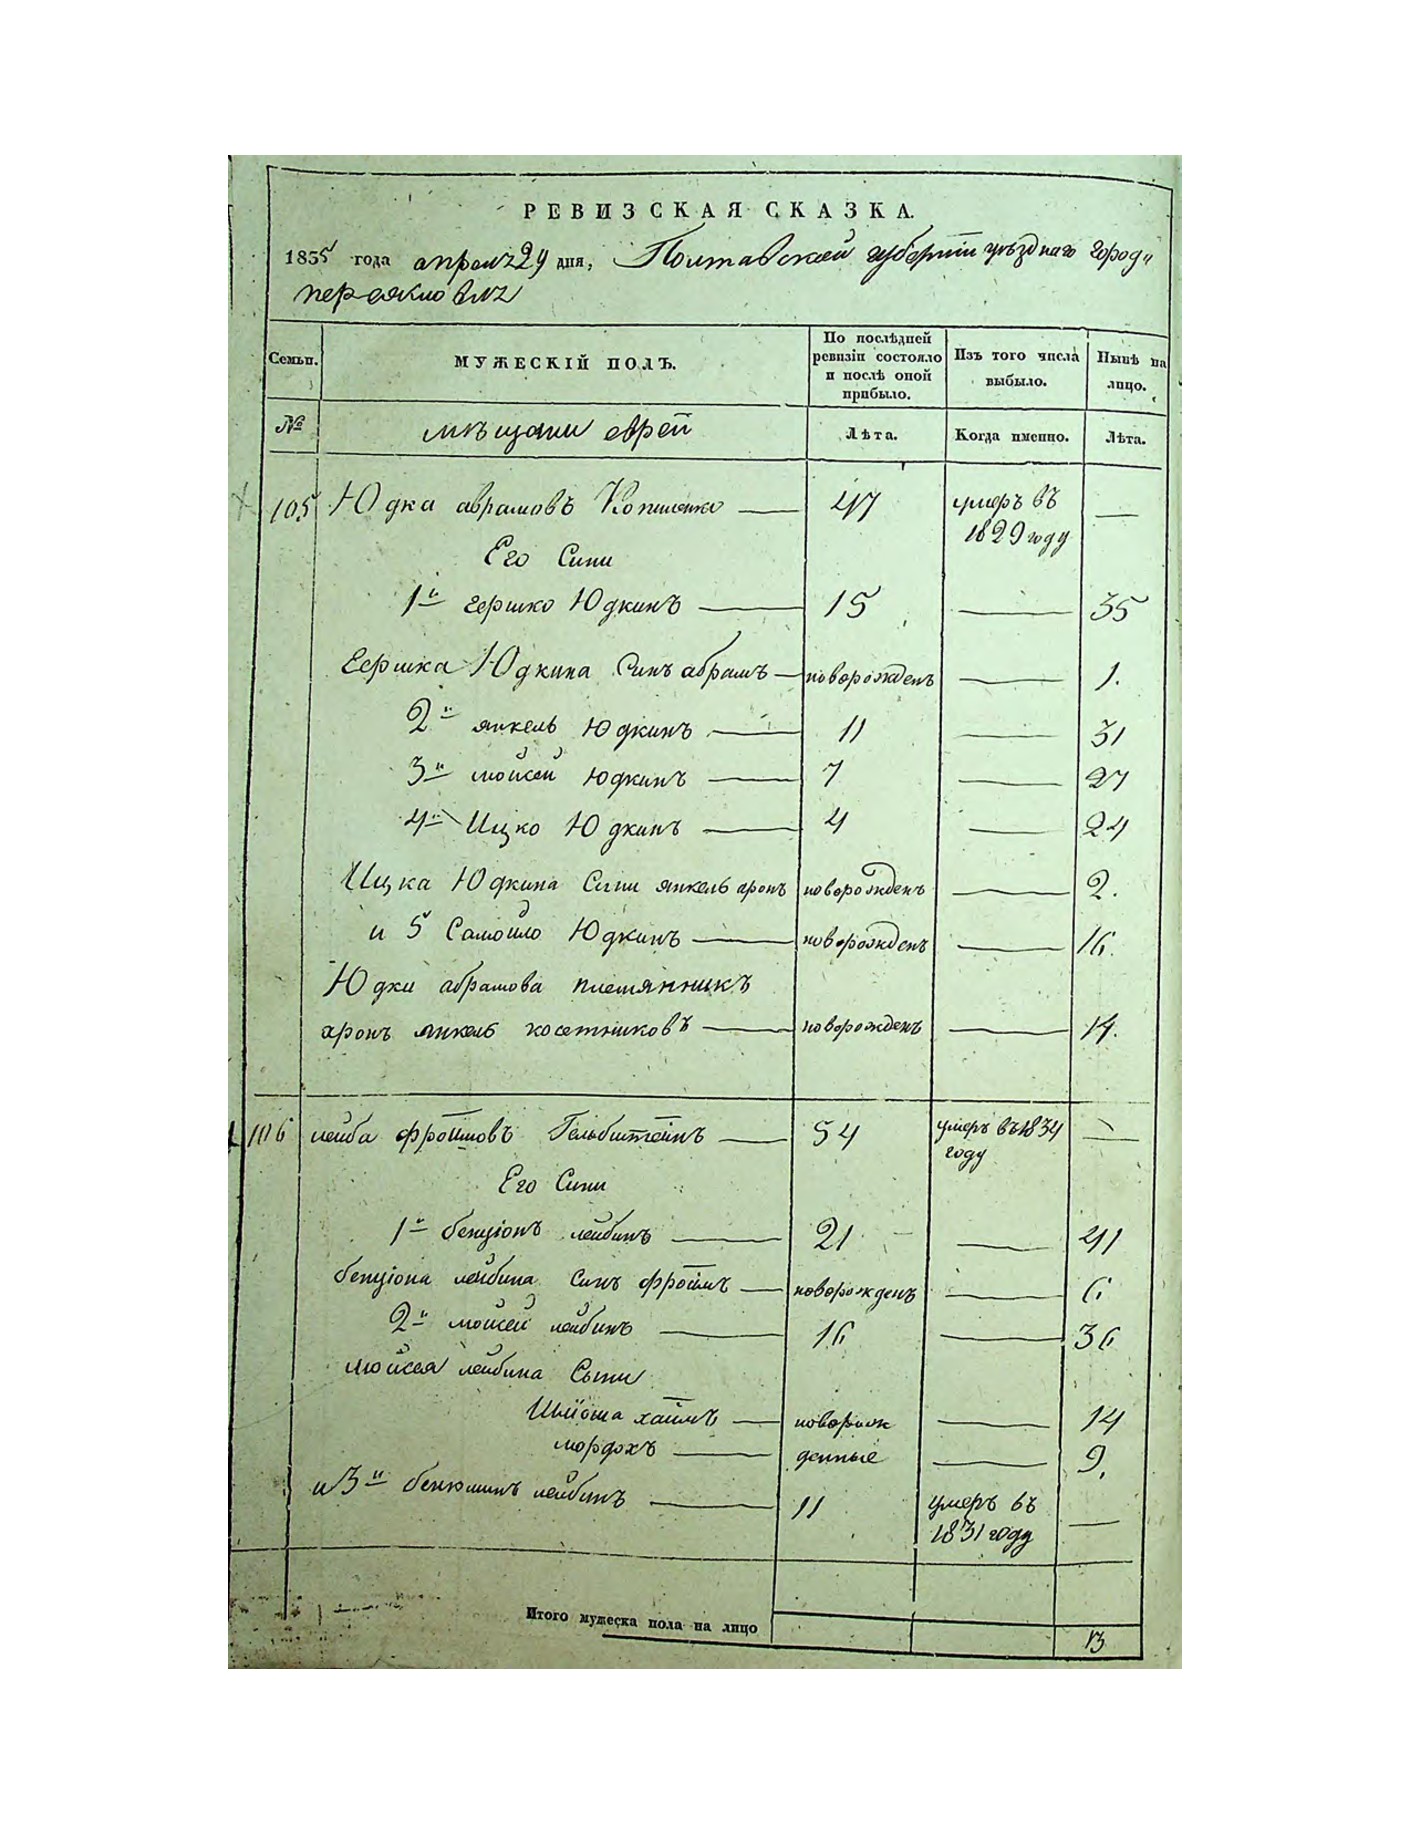 РЕВИЗСКАЯ СКАЗКА.
1835 года апреля 29 дня, Полтавской губернии уѣзднаго города
переяславля
Семьи. МУЖЕСКІЙ ПОЛЪ. По послѣдней ревизіи состояло и послѣ оной прибыло. Изъ того числа выбыло. Нынѣ на лицо.
№ мѣщани еврей Лѣта. Когда именно. Лѣта.
105 Юдка аврамовъ Копиленко — 47 умеръ въ —
1829 году
Его Сини
1й гершко Юдкинъ — 15 — 35
Гершка Юдкина Синъ абрамъ — новорожденъ — 1.
2й янкель Юдкинъ — 11 — 31
3й мойсей Юдкинъ — 7 — 27
4й Ицко Юдкинъ — 4 — 24
Ицка Юдкина Сини янкель аронъ новорожденъ — 2.
и 5 Самойло Юдкинъ — новорожденъ — 16.
Юдки абрамова племянникъ
аронъ янкель косетниковъ — новорожденъ — 14.
106 лейба фроимовъ Гельбштейнъ — 54 умеръ въ 1834 —
году
Его Сини
1й бенціонъ лейбинъ — 21 — 41
бенціона лейбина Синъ фроимъ — новорожденъ — 6
2й мойсей лейбинъ — 16 — 36
мойсея лейбина Сыни
Шліома хаимъ — новорож — 14
мордохъ — денные — 9.
и 3й бенюминъ лейбинъ — 11 умеръ въ —
1831 году
Итого мужеска пола на лицо 13